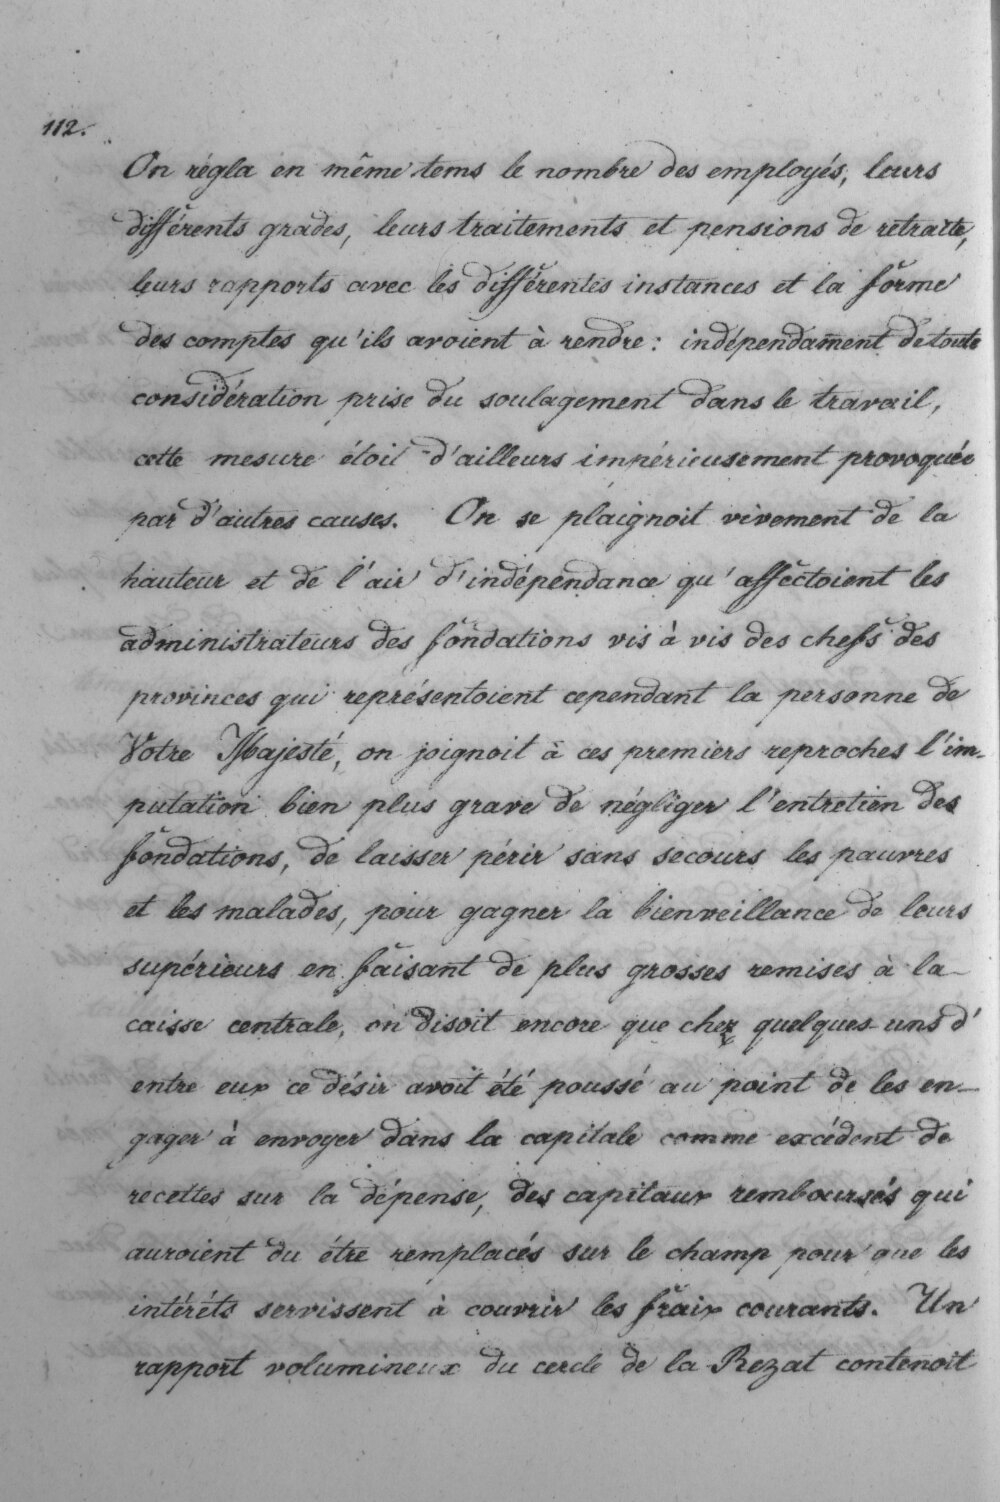 112.
On régla en même tems le nombre des employés, leurs
différents grades, leurs traitements et pensions de retraite,
leurs rapports avec les différentes instances et la forme
des comptes qu'ils avoient à rendre: indépendam̅ent de toute
considération prise du soulagement dans le travail,
cette mesure étoit d'ailleurs impérieusement provoquée
par d'autres causes. On se plaignoit vivement de la
hauteur et de l'air d'indépendance qu'affectoient les
administrateurs des fondations vis à vis des chefs des
provinces qui représentoient cependant la personne de
Votre Majesté, on joignoit à ces premiers reproches l'im-
putation bien plus grave de négliger l'entretien des
fondations, de laisser périr sans secours les pauvres
et les malades, pour gagner la bienveillance de leurs
supérieurs en faisant de plus grosses remises à la
caisse centrale, on disoit encore que chez quelques-uns d'
entre eux ce désir avoit été poussé au point de les en-
gager à envoyer dans la capitale comme excédent de
recettes sur la dépense, des capitaux remboursés qui
auroient du être remplacés sur le champ pour que les
intérêts servissent à couvrir les fraix courants. Un
rapport volumineux du cercle de la Rezat contenoit